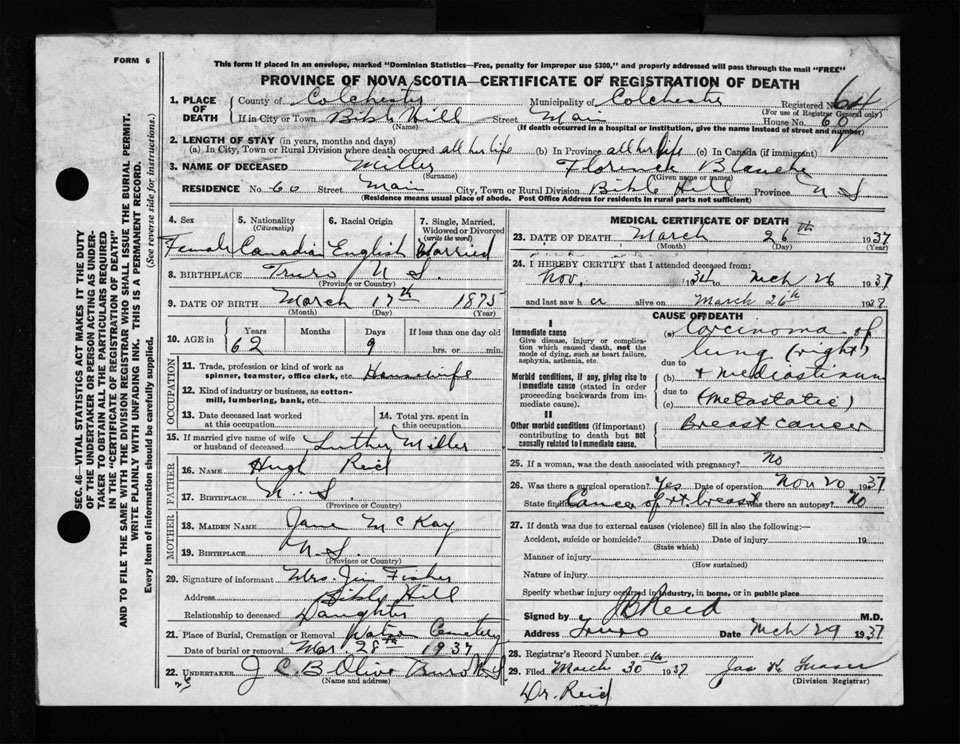 FORM 6
This form if placed in an envelope, marked "Dominion Statistics—Free, penalty for improper use $300," and properly addressed will pass through the mail "FREE"
PROVINCE OF NOVA SCOTIA—CERTIFICATE OF REGISTRATION OF DEATH
1. PLACE OF DEATH County of Colchester Municipality of Colchester Registered No. 64
(For use of Registrar General only)
If in City or Town Bible Hill Street Main House No. 60
(Name) (If death occurred in a hospital or institution, give the name instead of street and number)
2. LENGTH OF STAY (in years, months and days)
(a) In City, Town or Rural Division where death occurred all her life (b) In Province all her life (c) In Canada (if immigrant)
3. NAME OF DECEASED Miller Florence Blanche
(Surname) (Given name or names)
RESIDENCE No. 60 Street Main City, Town or Rural Division Bible Hill Province N S
(Residence means usual place of abode. Post Office Address for residents in rural parts not sufficient)
4. Sex 5. Nationality (Citizenship) 6. Racial Origin 7. Single, Married, Widowed or Divorced (write the word)
Female Canadian English Married
8. BIRTHPLACE Truro N S.
(Province or Country)
9. DATE OF BIRTH March 17th 1875
(Month) (Day) (Year)
10. AGE in Years Months Days If less than one day old
62 9 hrs. or min.
OCCUPATION
11. Trade, profession or kind of work as spinner, teamster, office clerk, etc. Housewife
12. Kind of industry or business, as cotton-mill, lumbering, bank, etc.
13. Date deceased last worked at this occupation 14. Total yrs. spent in this occupation
15. If married give name of wife or husband of deceased Luther Miller
FATHER
16. NAME Hugh Reid
17. BIRTHPLACE N. S.
(Province or Country)
MOTHER
18. MAIDEN NAME Jane McKay
19. BIRTHPLACE N. S.
(Province or Country)
20. Signature of informant Mrs. Jim Fisher
Address Bible Hill
Relationship to deceased Daughter
21. Place of Burial, Cremation or Removal Cemetery
Date of burial or removal Mar. 28th 1937
22. UNDERTAKER J C B Olive Truro N S
(Name and address)
MEDICAL CERTIFICATE OF DEATH
23. DATE OF DEATH March 26th 1937
(Month) (Day)
24. I HEREBY CERTIFY that I attended deceased from:
Nov. 1934 to Mch 26 1937
and last saw her alive on March 26th 1937
CAUSE OF DEATH
I
Immediate cause
Give disease, injury or complication which caused death, not the mode of dying, such as heart failure, asphyxia, asthenia, etc.
(a) Carcinoma of lung (right)
due to
Morbid conditions, if any, giving rise to immediate cause (stated in order proceeding backwards from immediate cause).
(b) + mediastinum
due to
(c) (metastatic)
II
Other morbid conditions (if important) contributing to death but not causally related to immediate cause.
Breast cancer
25. If a woman, was the death associated with pregnancy? No
26. Was there a surgical operation? Yes Date of operation Nov 20 1937
State findings Cancer of rt. breast Was there an autopsy? No
27. If death was due to external causes (violence) fill in also the following:—
Accident, suicide or homicide? Date of injury 19
(State which)
Manner of injury
(How sustained)
Nature of injury
Specify whether injury occurred in industry, in home, or in public place
Signed by Reid M.D.
Address Truro Date Mch 29 1937
28. Registrar's Record Number
29. Filed March 30 1937 Jas
(Division Registrar)
Dr. Reid
SEC. 46—VITAL STATISTICS ACT MAKES IT THE DUTY
OF THE UNDERTAKER OR PERSON ACTING AS UNDER-
TAKER TO OBTAIN ALL THE PARTICULARS REQUIRED
IN THE "CERTIFICATE OF REGISTRATION OF DEATH"
AND TO FILE THE SAME WITH THE DIVISION REGISTRAR WHO SHALL ISSUE THE BURIAL PERMIT.
WRITE PLAINLY WITH UNFADING INK. THIS IS A PERMANENT RECORD.
Every item of information should be carefully supplied. (See reverse side for instructions.)